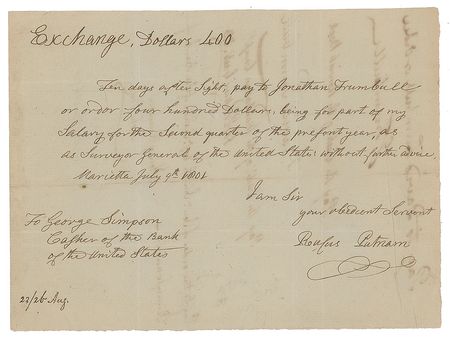 Exchange, Dollars 400
Ten days after Sight, pay to Jonathan Trumbull
or order four hundred Dollars, being for part of my
Salary for the Second quarter of the present year, as
as Surveyor General of the United States: without further advice.
Marietta July 9th 1801
I am Sir
your obedient Servent
Rufus Putnam
To George Simpson
Casher of the Bank
of the United States
23/26 Aug.